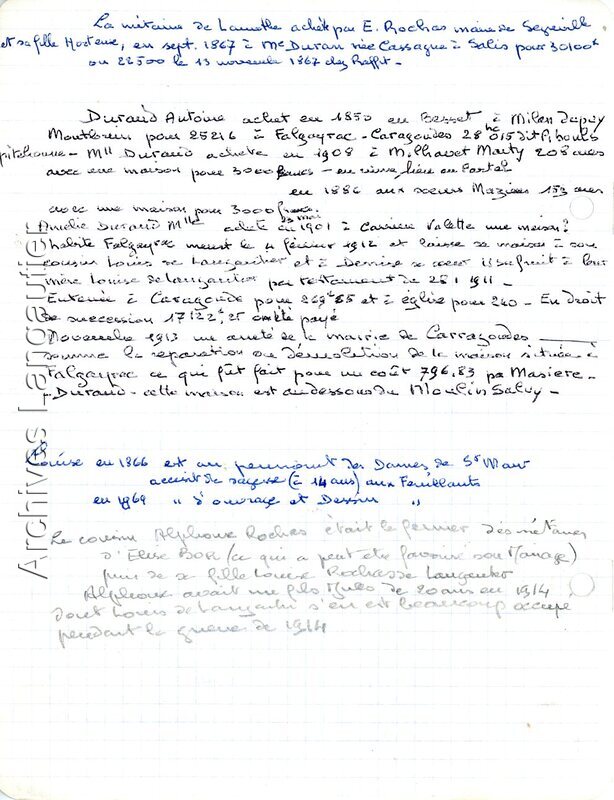 La métairie de Lamothe acheté par E. Rochas maire de Segreville
et sa fille Hortense, en sept. 1867 à Me Duran née Cassagne à Salis pour 30100f
ou 22500 le 13 novembre 1867 chez Raffit -
Durand Antoine achet en 1850 en Besset à Milan Dupuy
Montbrun pour 25216 à Falgayrac - Caragoudes 28 hc 015 dit Pibouls
pitchoune - Mll Durand achete en 1908 à Milhavet Marty 208 ares
avec une maison pour 3000 francs - en lieu en Partal
en 1886 aux soeurs Mazières 153 ares
avec une maison pour 3000 francs.
(Amélie Durand Mlle achete en 23 mai 1901 à Carrière Valette une maison?
(1) habite Falgayrac meurt le 4 février 1912 et laisse sa maison à son
cousin Louis de Langautier et à sa soeur usufruit à leur
mère Louise de Langautier par testament de 26 1 1911 -
Enterrée à Caragoude pour 269f65 et à église pour 240 - En droit
de succession 17122f,25 ont été payé
Novembre 1913 un arrêté de la mairie de Carragoudes
somme la reparation ou démolition de la maison située à
Falgayrac ce qui fût fait pour un coût 796.83 par Masiere -
Durand - cette maison est au dessous du Moulin Salvy -
Louise en 1866 est au pensionnat des Dames de St Maur
accessit de sagesse (à 14 ans) aux Feuillants
en 1869 " d'ouvrage et Dessin "
Le cousin Alphonse Rochas était le fermier des métairies
d'Elise Bosc (ce qui a peut etre favorisé son Mariage)
puis de sa fille Louise Rochas de Langautier
Alphonse avait un fils Jules de 20 ans en 1914
dont Louis de Langautier s'en est beaucoup occupé
pendant la guerre de 1914
Archives Langautier